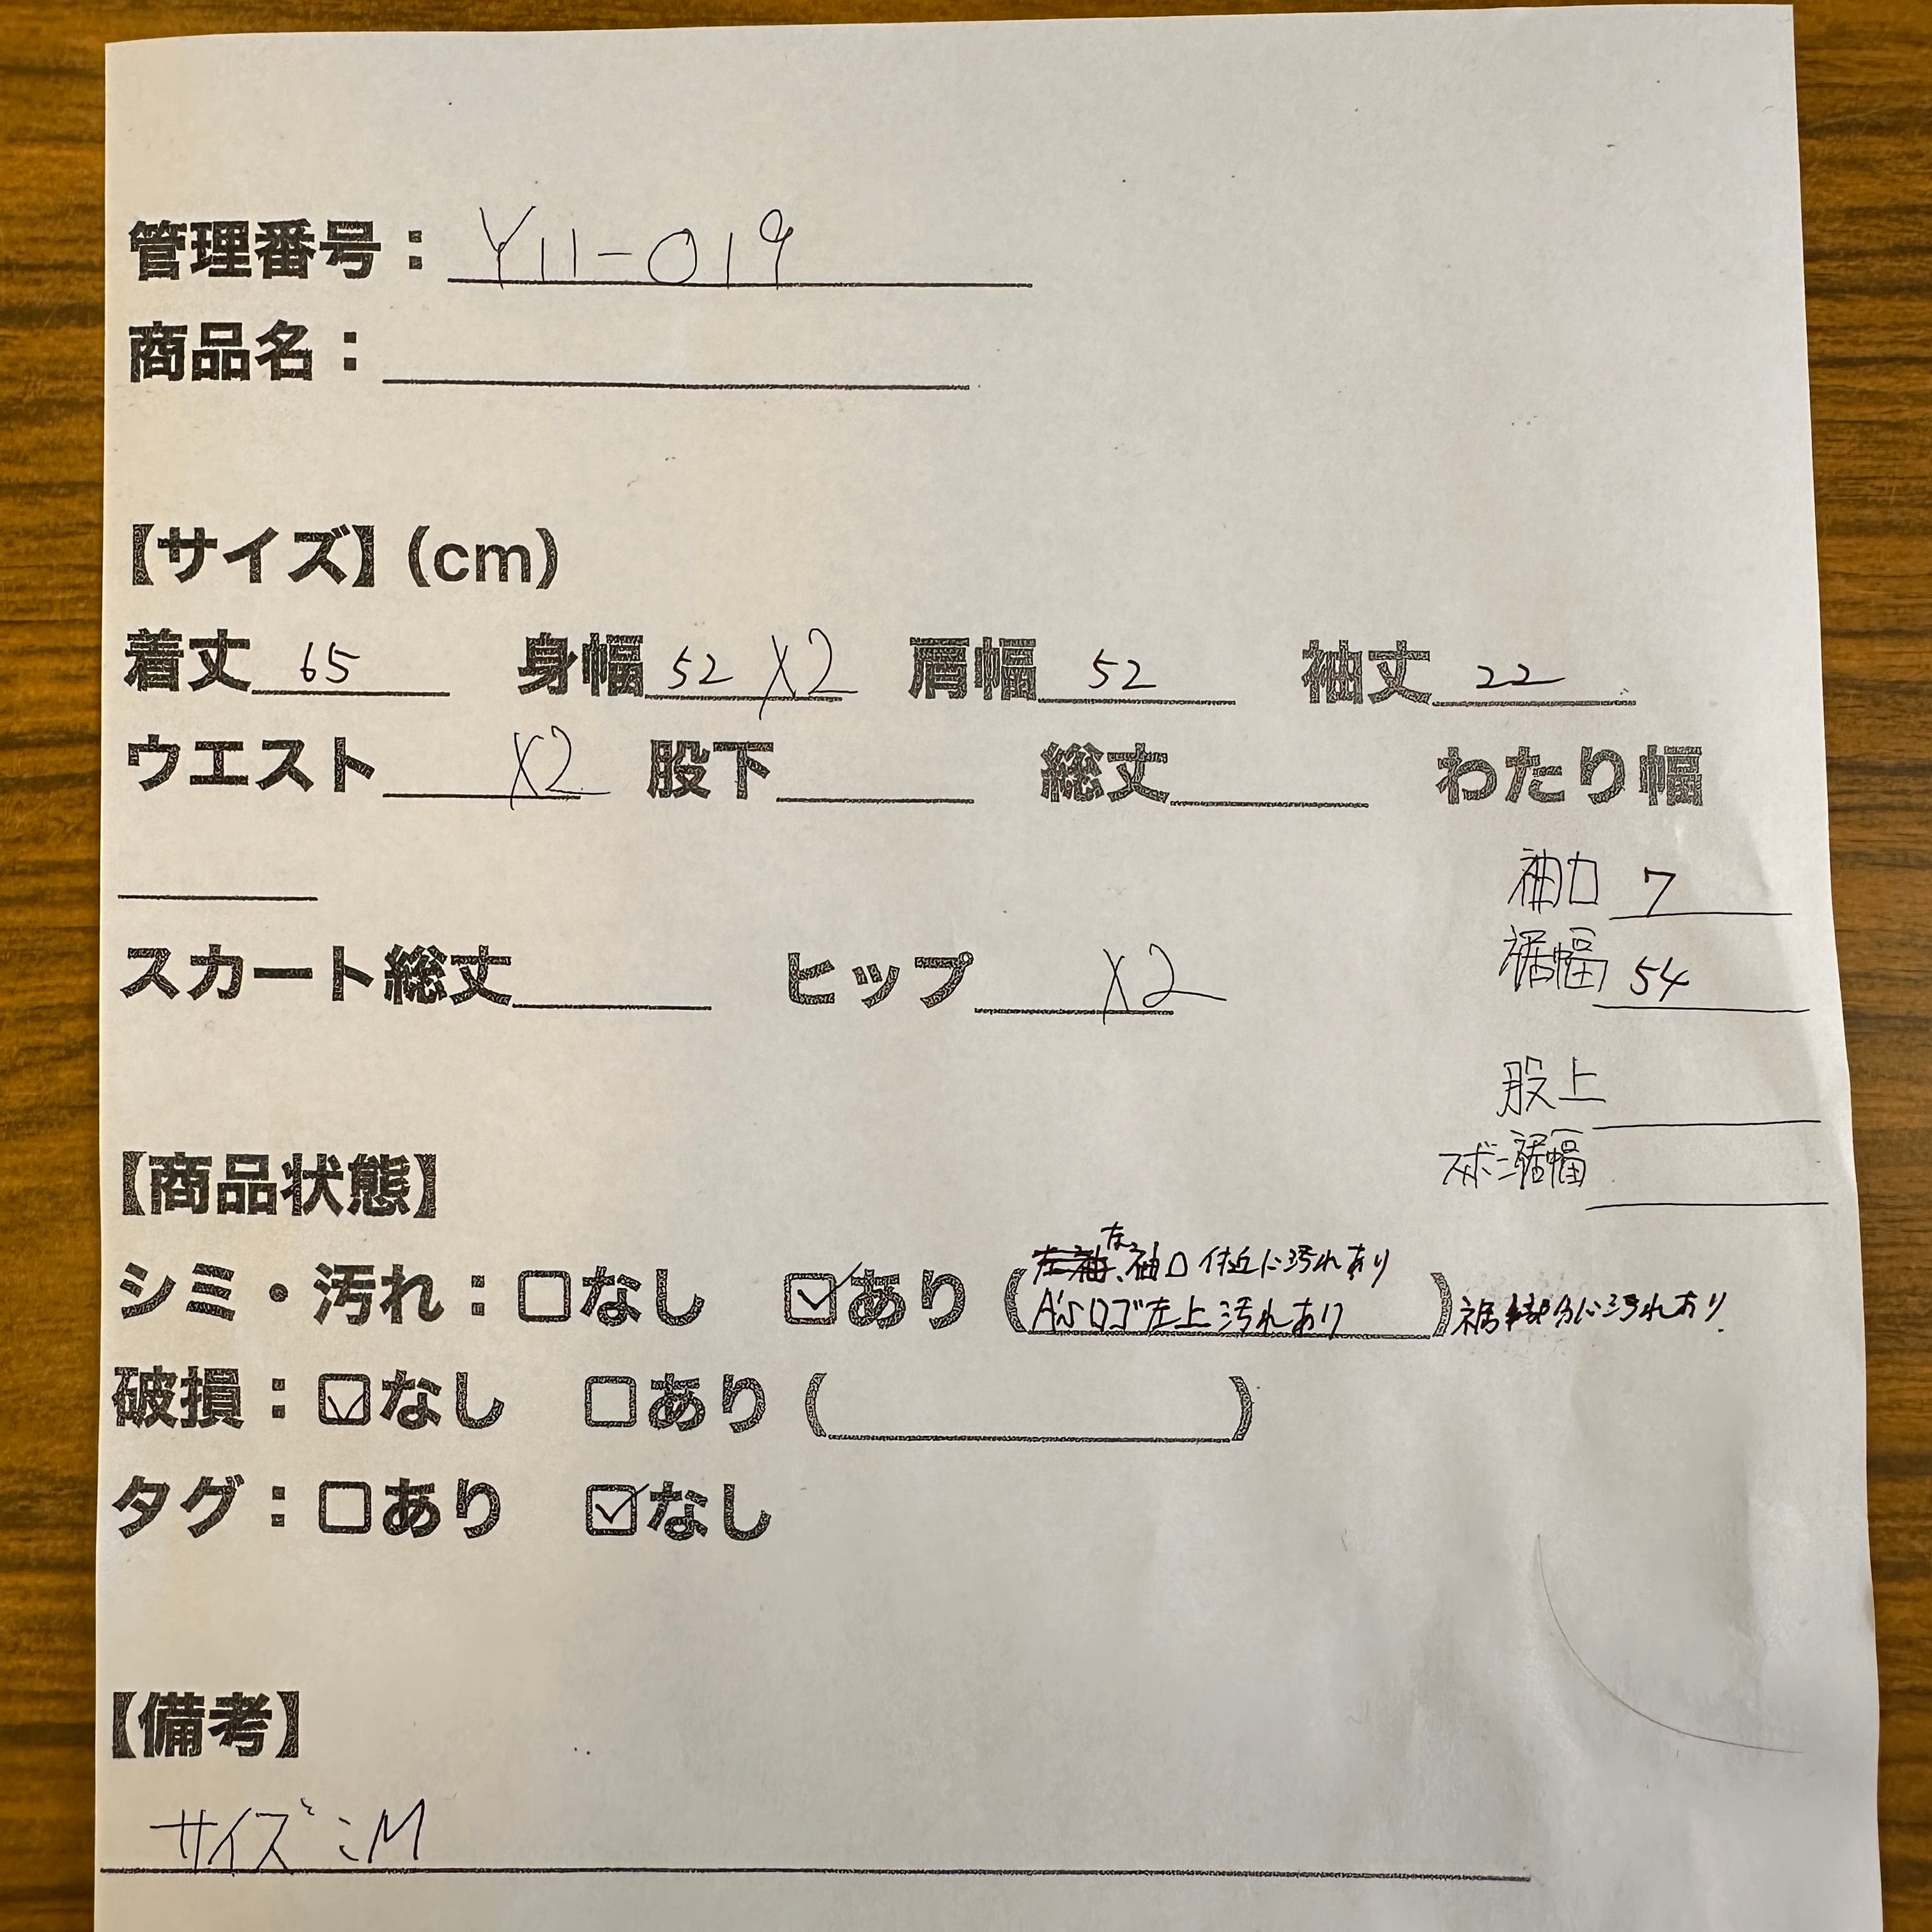 管理番号：Y11-019
商品名：
【サイズ】(cm)
着丈 65 身幅 52 X2 肩幅 52 袖丈 22
ウエスト X2 股下 総丈 わたり幅
袖口 7
裾幅 54
スカート総丈 ヒップ X2
股上
ズボン裾幅
【商品状態】
シミ・汚れ：□なし ☑あり(左袖口付近に汚れあり
A'sロゴ左上汚れあり)裾部分に汚れあり.
破損：☑なし □あり( )
タグ：□あり ☑なし
【備考】
サイズ:M